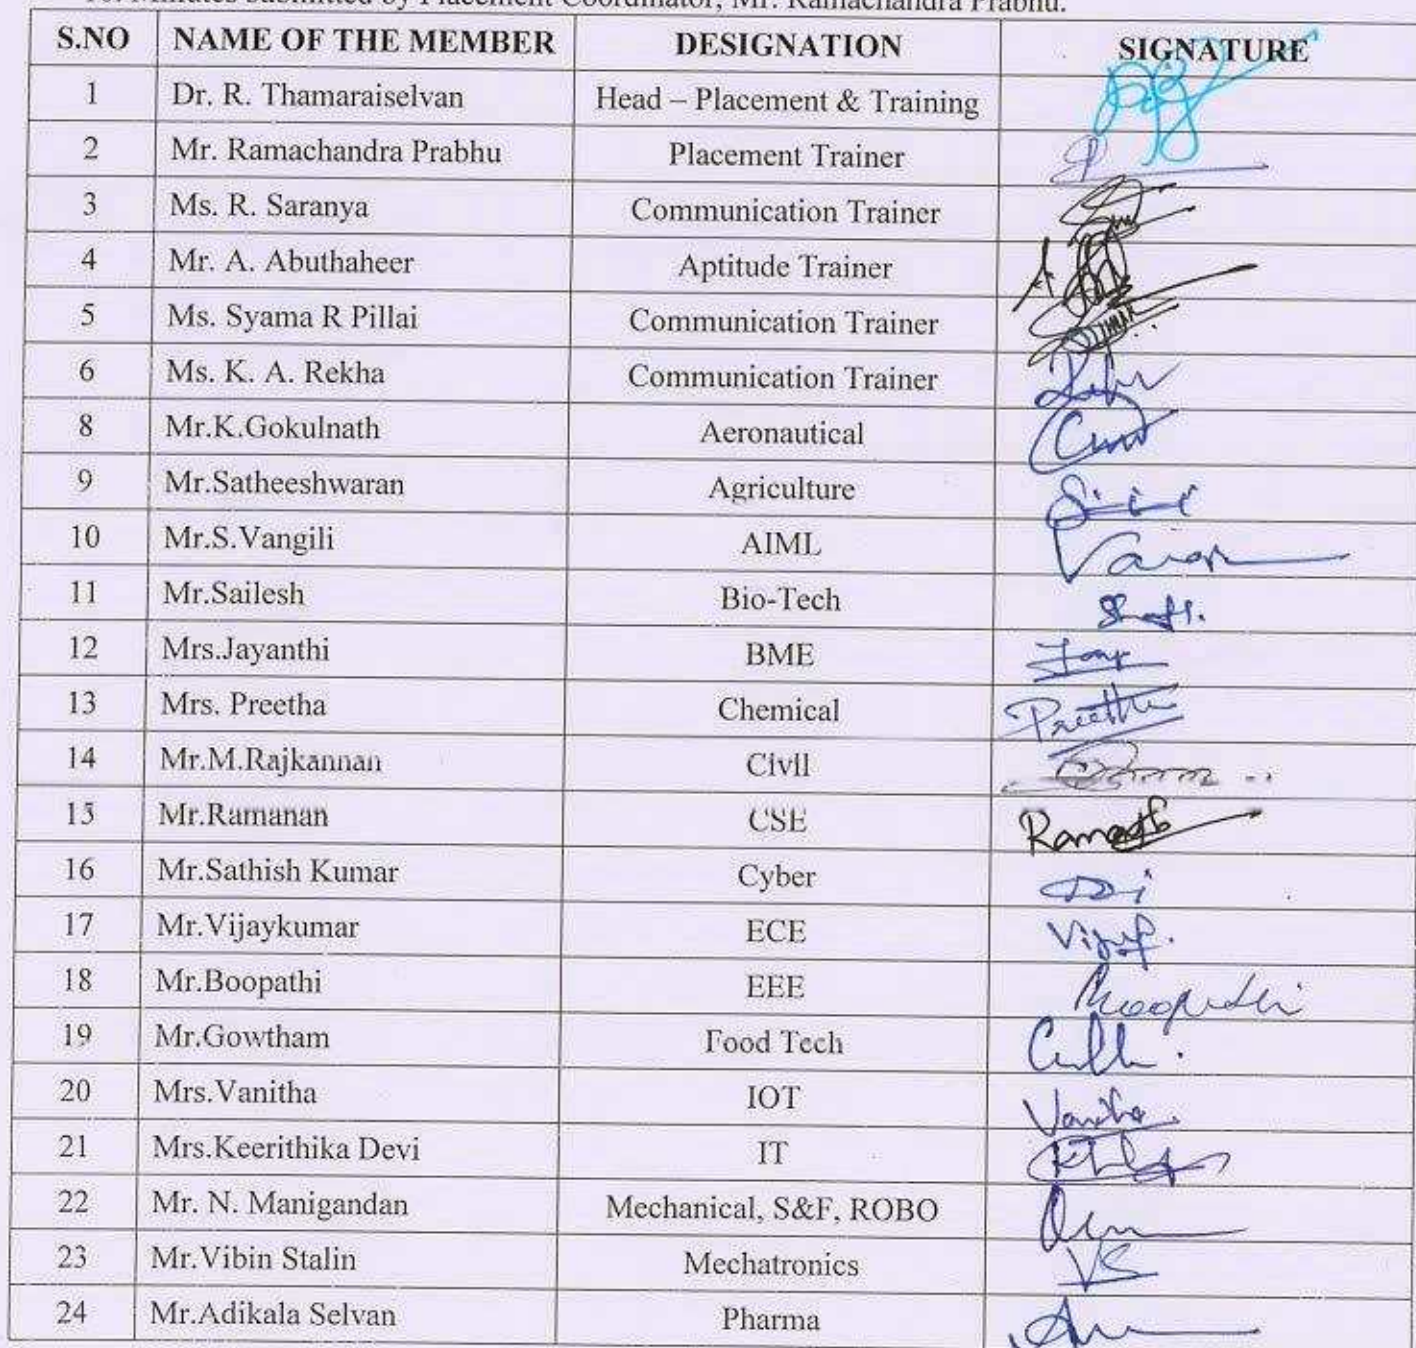 Minutes submitted by Placement Coordinator, Mr. Ramachandra Prabhu.
S.NO NAME OF THE MEMBER DESIGNATION SIGNATURE
1 Dr. R. Thamaraiselvan Head – Placement & Training
2 Mr. Ramachandra Prabhu Placement Trainer
3 Ms. R. Saranya Communication Trainer
4 Mr. A. Abuthaheer Aptitude Trainer
5 Ms. Syama R Pillai Communication Trainer
6 Ms. K. A. Rekha Communication Trainer
8 Mr.K.Gokulnath Aeronautical
9 Mr.Satheeshwaran Agriculture
10 Mr.S.Vangili AIML
11 Mr.Sailesh Bio-Tech
12 Mrs.Jayanthi BME
13 Mrs. Preetha Chemical Preetha
14 Mr.M.Rajkannan Civil
15 Mr.Ramanan CSE
16 Mr.Sathish Kumar Cyber
17 Mr.Vijaykumar ECE
18 Mr.Boopathi EEE Boopathi
19 Mr.Gowtham Food Tech
20 Mrs.Vanitha IOT Vanitha
21 Mrs.Keerithika Devi IT
22 Mr. N. Manigandan Mechanical, S&F, ROBO
23 Mr.Vibin Stalin Mechatronics VS
24 Mr.Adikala Selvan Pharma